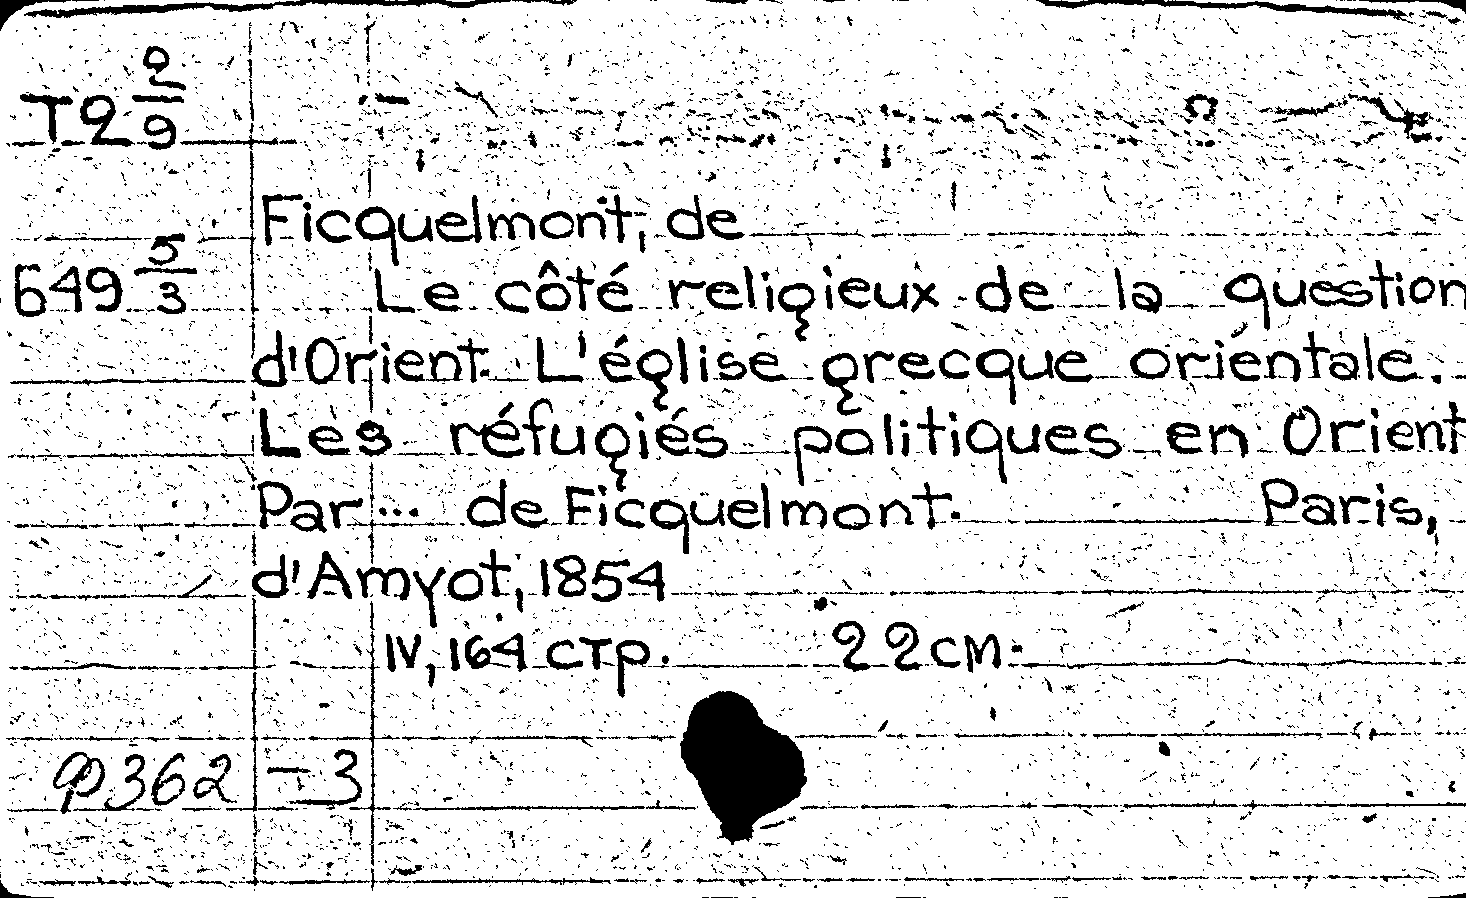 T2 2/9
Ficquelmont, de
649 5/3
Le côté religieux de la question
d'Orient. L'église grecque oriéntale.
Les réfugiés politiques en Orient
Par... de Ficquelmont. Paris,
d'Amyot, 1854
IV, 164 стр. 22 см.
Ф362-3